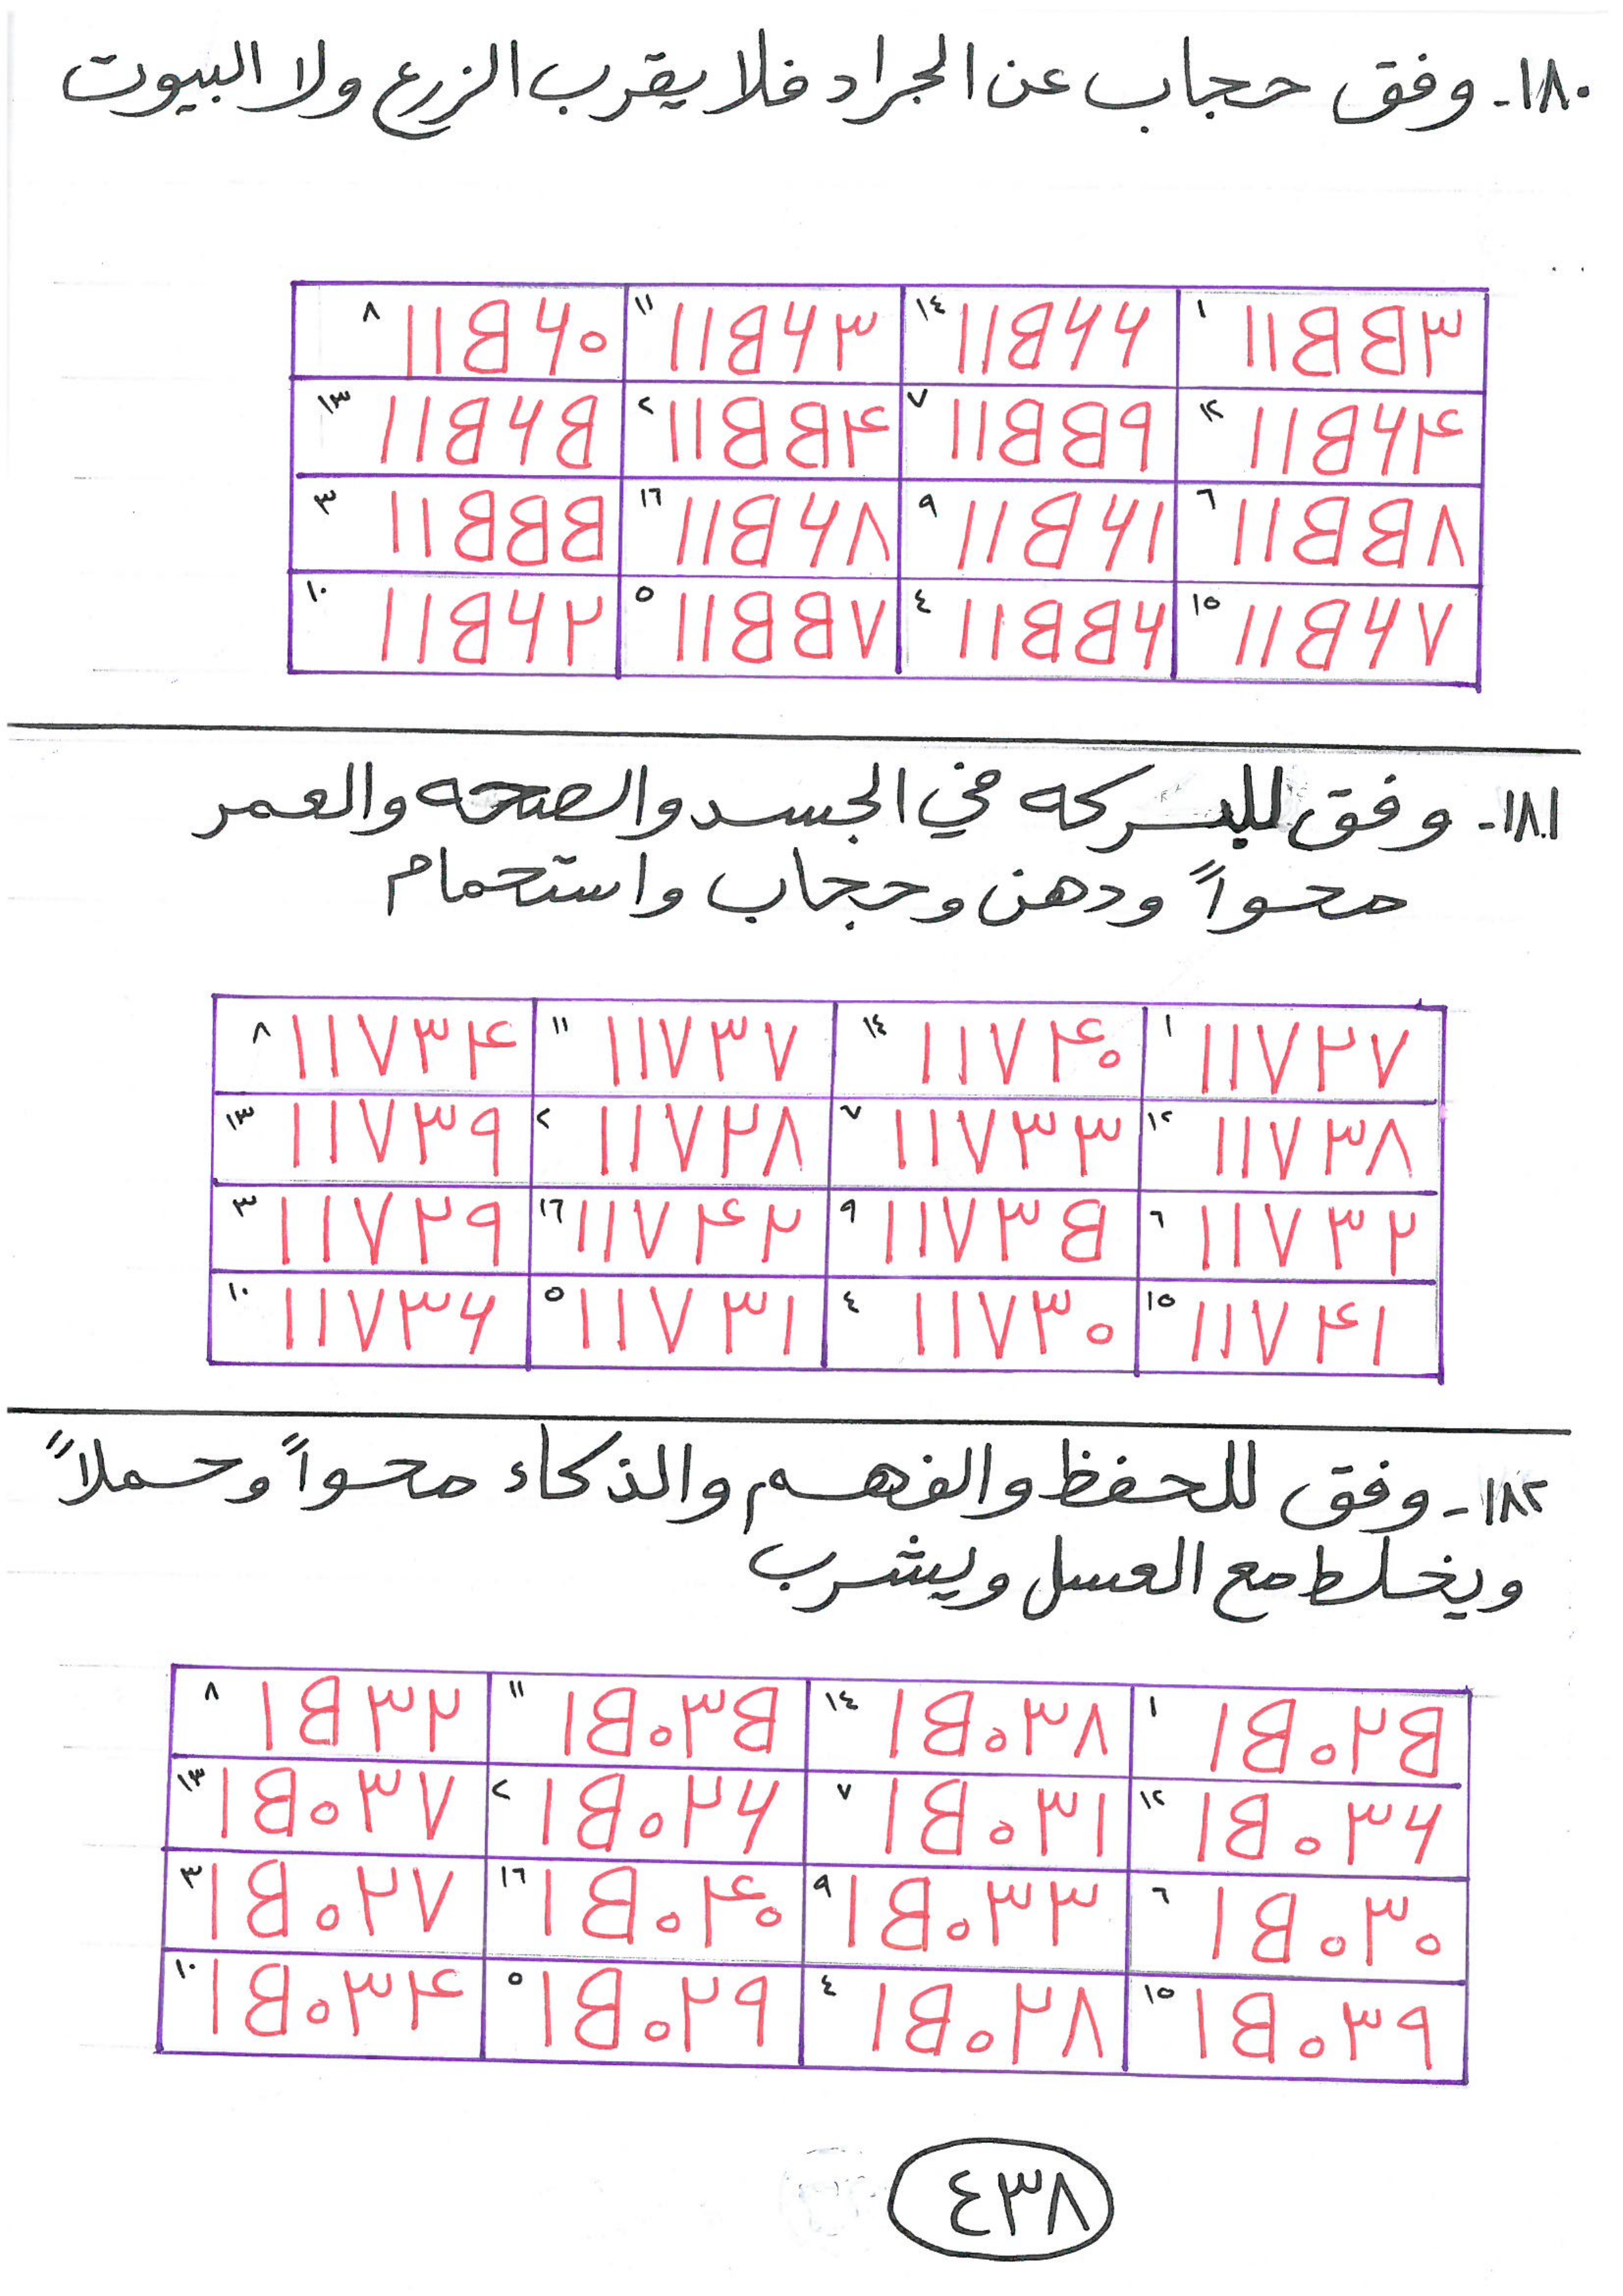 ١٨٠- وفق حجاب عن الجراد فلا يقرب الزرع ولا البيوت
١ ١١٥٥٣ ١٤ ١١٥٦٦ ١١ ١١٥٦٣ ٨ ١١٥٦٠
١٢ ١١٥٦٤ ٧ ١١٥٥٩ ٢ ١١٥٥٤ ١٣ ١١٥٦٥
٦ ١١٥٥٨ ٩ ١١٥٦١ ١٦ ١١٥٦٨ ٣ ١١٥٥٥
١٥ ١١٥٦٧ ٤ ١١٥٥٦ ٥ ١١٥٥٧ ١٠ ١١٥٦٢
١٨١- وفق للبركه في الجسد والصحه والعمر
محواً ودهن وحجاب واستحمام
١ ١١٧٢٧ ١٤ ١١٧٤٠ ١١ ١١٧٣٧ ٨ ١١٧٣٤
١٢ ١١٧٣٨ ٧ ١١٧٣٣ ٢ ١١٧٢٨ ١٣ ١١٧٣٩
٦ ١١٧٣٢ ٩ ١١٧٣٥ ١٦ ١١٧٤٢ ٣ ١١٧٢٩
١٥ ١١٧٤١ ٤ ١١٧٣٠ ٥ ١١٧٣١ ١٠ ١١٧٣٦
١٨٢- وفق للحفظ والفهم والذكاء محواً وحملاً
ويخلط مع العسل ويشرب
١ ١٥٠٢٥ ١٤ ١٥٠٣٨ ١١ ١٥٠٣٥ ٨ ١٥٣٢
١٢ ١٥٠٣٦ ٧ ١٥٠٣١ ٢ ١٥٠٢٦ ١٣ ١٥٠٣٧
٦ ١٥٠٣٠ ٩ ١٥٠٣٣ ١٦ ١٥٠٤٠ ٣ ١٥٠٢٧
١٥ ١٥٠٣٩ ٤ ١٥٠٢٨ ٥ ١٥٠٢٩ ١٠ ١٥٠٣٤
٤٣٨